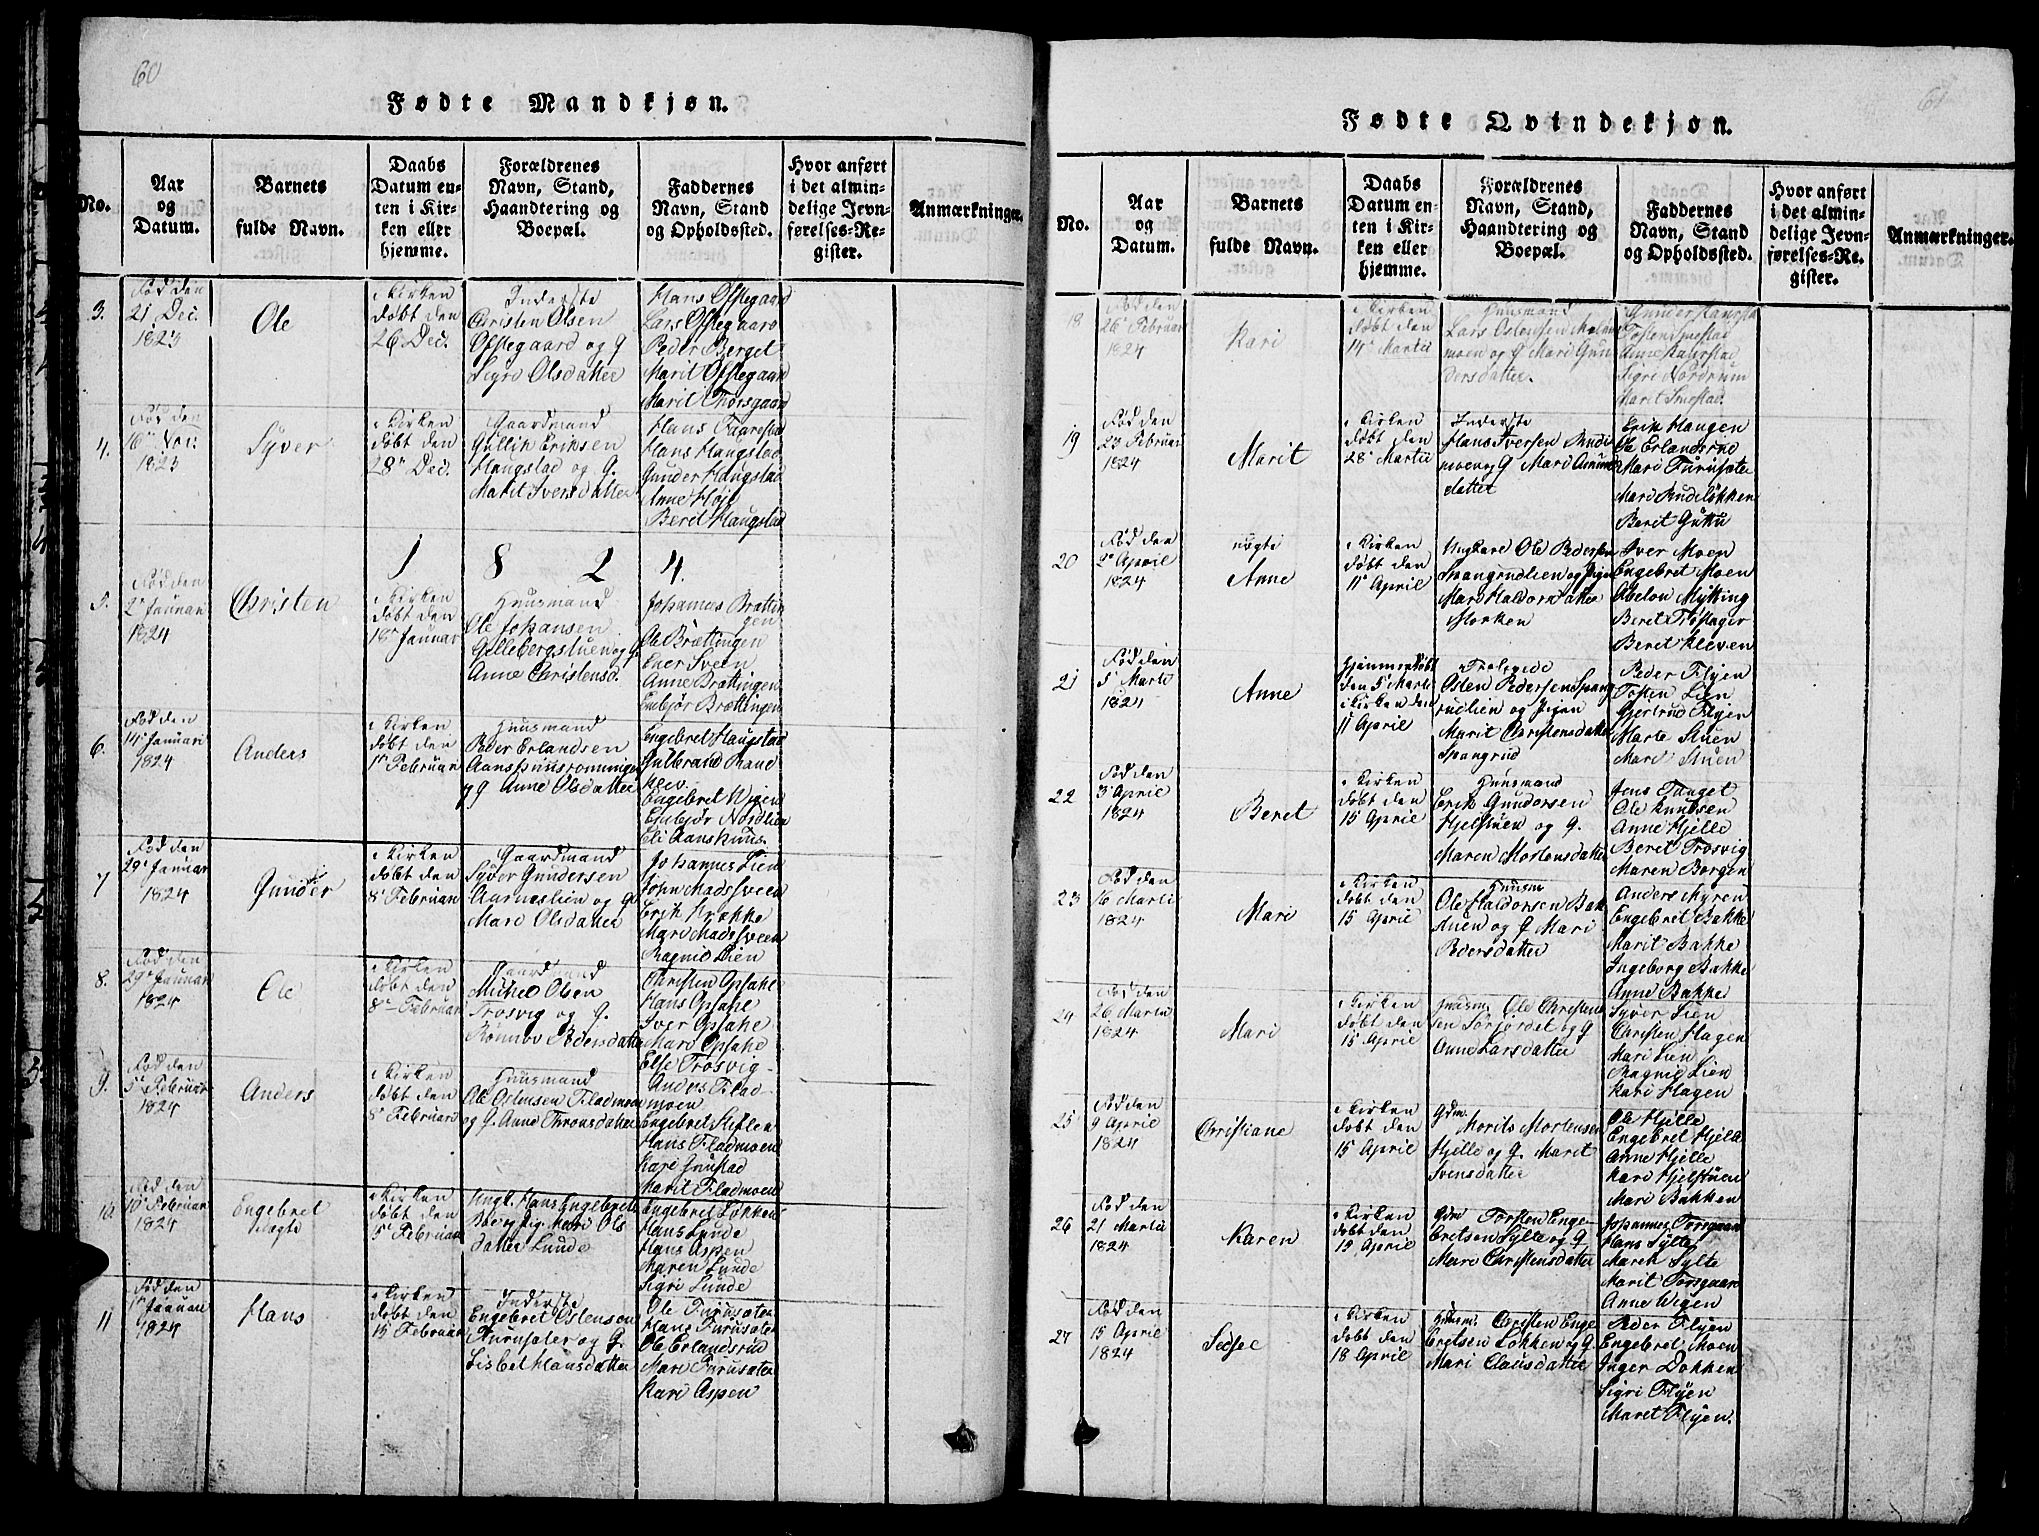 60
Fødte Mandkjøn.
No.
Aar
og
Datum.
Barnets
fulde Navn.
Daabs
Datum en-
ten i Kir-
ken eller
hjemme.
Forældrenes
Navn, Stand,
Haandtering og
Boepæl.
Faddernes
Navn, Stand
og Opholdssted.
Hvor anført
i det almin-
delige Jevn-
førelses-Re-
gister.
Anmærkninger.
3.
Fød den
21 Dec.
1823
Ole
i Kirken
døbt den
26 Dec.
Inderste
Christen Olsen
Ofstegaard og G
Sigri Olsdatter
Hans Ofstegaard
Lars Ofstegaard
Peder Berget
Marit Ofstegaard
Marit Thorsgaard
4.
Fød den
16 Nov:
1823
Syver
i Kirken
døbt den
28 Dec.
Gaardmand
Gullik Eriksen
Haugstad og G.
Marit Iversdatter
Hans Taarestad
Hans Haugstad
Gunder Haugstad
Anne Høje
Berit Haugstad
1 8 2 4.
5.
Fød den
2 Januari
1824
Christen
i Kirken
døbt den
18 Januar
Huusmand
Ole Johansen
Gillebergstuen og G.
Anne Christensd.
Johannes Brætting
gen
Ole Brættingen
Ener Sveen
Anne Brættingen
Embjør Brættingen
6.
Fød den
14 Januari
1824
Anders
i Kirken
døbt den
1 Februar
Huusmand
Peder Erlandsen
og G Anne Olsdatter
Engebret Haugstad
Gulbrand Rand
klev
Engebret Wigen
Embjør Nordlien
Eli Aanshuus.
7
Fød den
29 Januar
1824
Gunder
i Kirken
døbt den
8 Februar
Gaardmand
Syver Gundersen
Aarneslien og G
Mari Olsdatter
Johannes Lien
John Madssveen
Erik Krække
Mari Madssveen
Ragnid Lien
8.
Fød den
29 Januar
1824
Ole
i Kirken
døbt den
8 Februar
Gaardmand
Michel Olsen
Trosvig og G.
Rønnov Pedersdatter
Christen Opsahl
Hans Opsahl
Iver Opsahl
Mari Opsahl
Else Trosvig
9.
Fød den
5 Februar
1824
Anders
i Kirken
døbt den
8 Februar
Huusmand
Ole Ostensen Fladmoen
og G. Anne Thronsdatter
Anders Flad-
moen
Engebret Stiflen
Hans Fladmoen
Kari Gunstad
Marit Fladmoen
10
Fød den
10 Februar
1824
Engebret
uægte
i Kirken
døbt den
15 Februar
Ungk. Hans Engebrets
Berg Pig. Mari Ols
datter Lunde
Engebret Løkken
Hans Lunde
Hans Aspen
Maren Lunde
Sigri Lunde
11
Fød den
1 Januari
1824
Hans
i Kirken
døbt den
15 Februar
Inderste
Engebret Ostensen
Furusater og G.
Lisbet Hansdatter
Ole Furusater
Hans Furusater
Ole Erlandsrud
Mari Furusater
Kari Aspen
61
Fødte Qvindekjøn.
No.
Aar
og
Datum.
Barnets
fulde Navn.
Daabs
Datum en-
ten i Kir-
ken eller
hjemme.
Forældrenes
Navn, Stand,
Haandtering og
Boepæl.
Faddernes
Navn, Stand
og Opholdssted.
Hvor anført
i det almin-
delige Jevn-
førelses-Re-
gister.
Anmærkninger.
18
Fød den
26 Februar
1824
Kari
i Kirken
døbt den
14 Martii
Huusmand
Lars Ostensen
moen og G Mari Gun
dersdatter.
Tosten Smestad
Anne
Sigri Nordrum
Marit Smestad.
19
Fød den
23 Februar
1824
Marit
i Kirken
døbt den
28 Martii
Inderste
Hans Iversen Rudi
moen og G Mari Amund
datter
Erik Haugen
Ole Erlandsrud
Mari Furusater
Mari Rudiløkken
Berit Guttu
20
Fød den
2 April
1824
uægte
Anne
i Kirken
døbt den
11 April
Ungkarl Ole Pedersen
Spangrudlien og Pigen
Mari Haldorsdatter
Morken
Iver Moen
Engebret Moen
Abelon Mytting
Beret Trøstager
Beret Kleven
21
Fød den
5 Marti
1824
Anne
hjemmedøbt
den 5 Marti
i Kirken den
11 April
Frolovede
Osten Pedersen Spang
rudlien og Pigen
Marit Christensdatter
Spangrud
Peder Flyen
Tosten Lien
Gjertrud Flyen
Marte Stuen
Mari Stuen
22
Fød den
3 April
1824
Beret
i Kirken
døbt den
15 April
Huusmand
Erik Gundersen
Hjelstuen og G.
Maren Mortensdatter
Jens Tanget
Ole Knudsen
Anne Hjelle
Beret Trosvig
Maren Borgen
23
Fød den
16 Martii
1824
Mari
i Kirken
døbt den
15 April
Huusm
Ole Haldorsen Bak
stuen og G Mari
Pedersdatter
Anders Myren
Engebret Bakke
Marit Bakke
Ingeborg Bakke
Anne Bakke
24
Fød den
26 Martii
1824
Mari
i Kirken
døbt den
15 April
Huusm: Ole Christen
sen Sørjordet og G
Anne Larsdatter
Syver Lien
Christen Hagen
Mari Lien
Ragnid Lien
Kari Hagen
25
Fød den
9 April
1824
Christiane
i Kirken
døbt den
15 April
Gdm. Morits Mortensen
Hjelle og G. Marit
Svensdatter
Ole Hjelle
Engebret Hjelle
Anne Hjelle
Kari Hjelstuen
Mari Bakken
26
Fød den
21 Martii
1824
Karen
i Kirken
døbt den
15 April
Gdm Torsten Enge-
bretsen Sylte og G
Mari Christensdatter
Johannes Torsgaard
Hans Sylte
Marit Sylte
Marit Torsgaard
Anne Wigen
27
Fød den
15 April
1824
Sidsel
i Kirken
døbt den
18 April
Huusm: Christen Enge
bretsen Løkken og G.
Mari Clausdatter
Peder Flyen
Engebret Moen
Inger Dokken
Sigri Flyen
Maret Flyen.